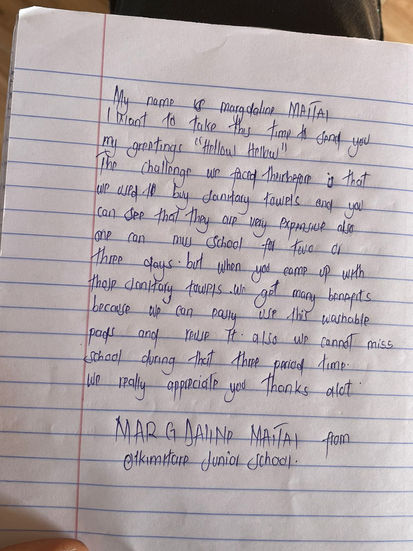 My name is margdaline MAITAI
I Want to take this time to send you
my greetings "Hellow! Hellow"
The challenge we faced therebefore is that
we used to buy sanitary towels and you
can see that they are very expensive also
one can miss school for two or
three days. but when you came up with
those sanitary towels. we get many benefits
because we can easily use this washable
pads and reuse it. also we cannot miss
school during that three period time.
we really appreciate you thanks alot.
MARGDALINE MAITAI from
Junior School.